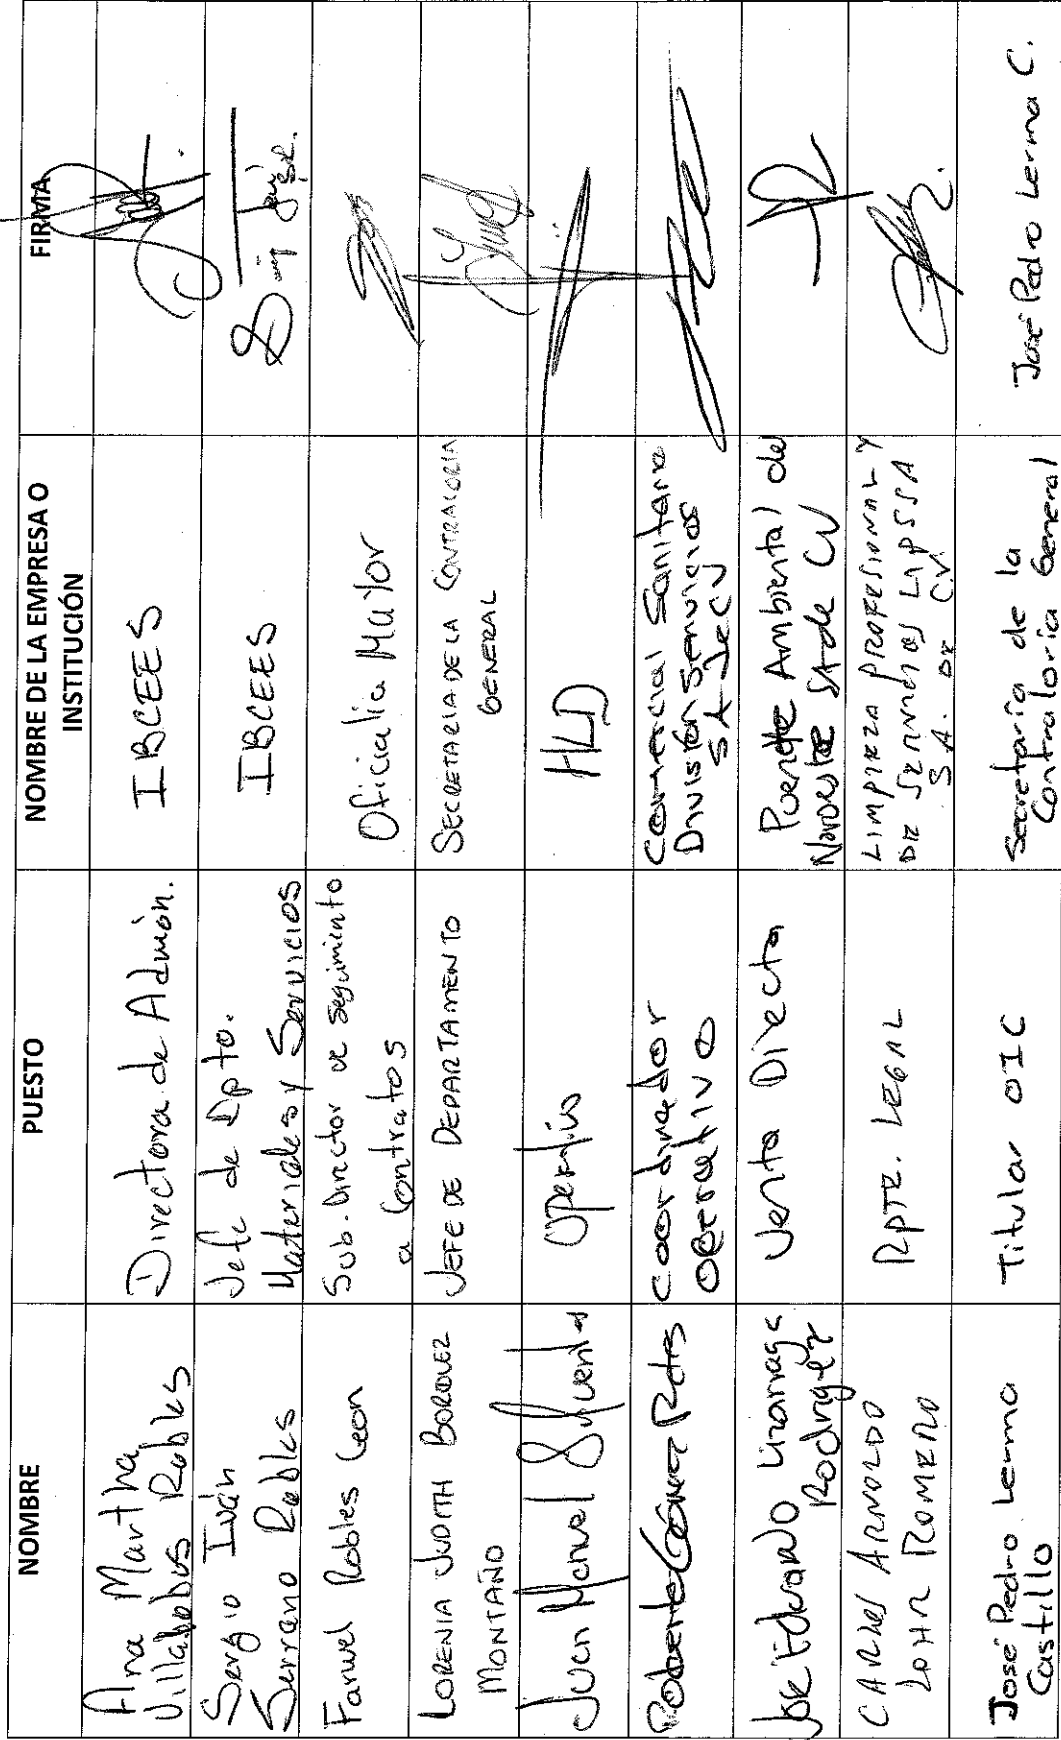 NOMBRE
PUESTO
NOMBRE DE LA EMPRESA O
INSTITUCIÓN
FIRMA
Ana Martha
Villalobos Robles
Directora de Admón.
IBCEES
Sergio Iván
Serrano Robles
Jefe de Dpto.
Materiales y Servicios
IBCEES
Robles Leon
Sub-Director de Seguimiento
a Contratos
Oficialia Mayor
LORENIA JUDITH BORQUEZ
MONTAÑO
JEFE DE DEPARTAMENTO
SECRETARIA DE LA CONTRALORIA
GENERAL
Juan Manuel
HLD
Roberto Gómez
Coordinador
Operativo
Comercial Sanitaria
División Servicios
SA de CV
José Eduardo Lizarraga
Rodriguez
Venta Directa
Puente Ambiental del
Noroeste SA de CV
CARLOS ARNOLDO
LOHR ROMERO
RPTE. LEGAL
LIMPIEZA PROFESIONAL Y
DE SERVICIOS LIPSSA
S.A. DE C.V.
José Pedro Lerma
Castillo
Titular OIC
Secretaría de la
Contraloría General
José Pedro Lerma C.